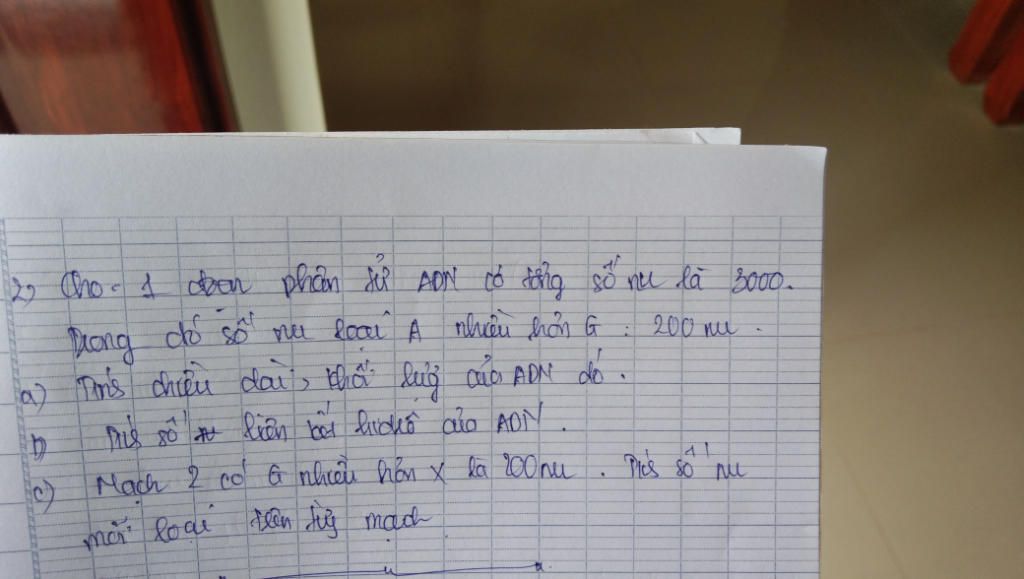 2) Cho 1 đoạn phân tử ADN có tổng số nu là 3000.
Trong đó số nu loại A nhiều hơn G : 200 nu.
a) Tính chiều dài, khối lượng của ADN đó.
b) Tính số liên kết hiđrô của ADN.
c) Mạch 2 có G nhiều hơn X là 200 nu. Tính số nu
mỗi loại trên từng mạch